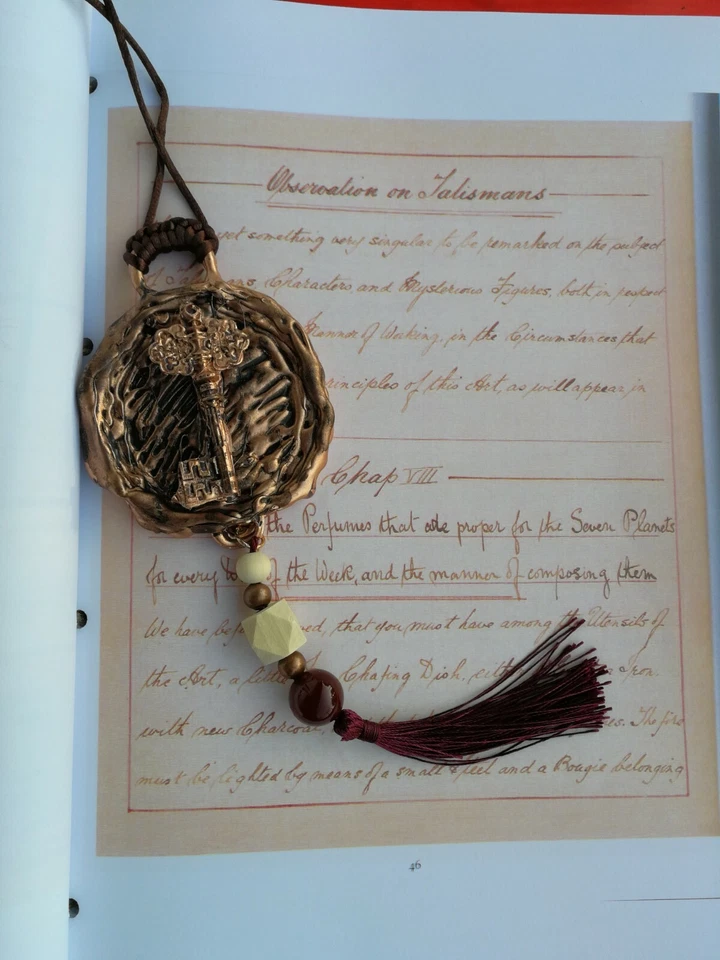 Observation on Talismans
yet something very singular to be remarked on the subject
Characters, and Mysterious Figures, both in respect
Manner of Working, in the Circumstances that
rinciples of this Art, as will appear in
Chap VIII
the Perfumes that are proper for the Seven Planets
for every of the Week, and the manner of composing them
We have bef ed, that you must have among the Utensils of
the Art, a little Chafing Dish, eith ron.
with new Charcoal, es. The fire
must be lighted by means of a small Steel and a Bougie belonging
46